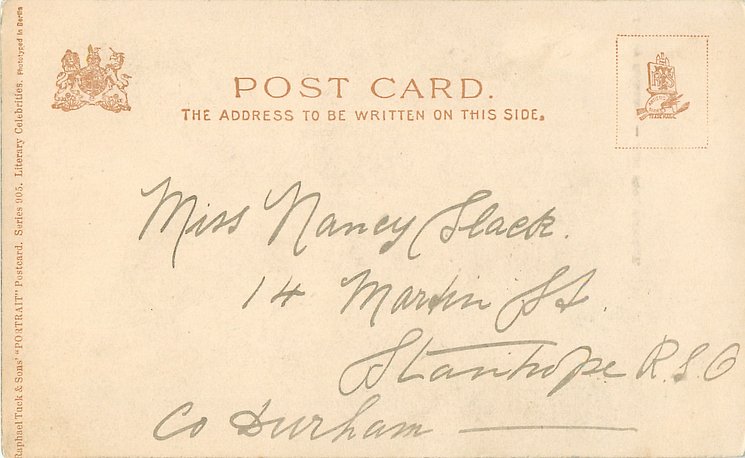 POST CARD.
THE ADDRESS TO BE WRITTEN ON THIS SIDE.
Miss Nancy Slack.
14 Martin St.
Stanhope R.S.O
Co Durham
Raphael Tuck & Sons' "PORTRAIT" Postcard. Series 905. Literary Celebrities. Phototyped in Berlin